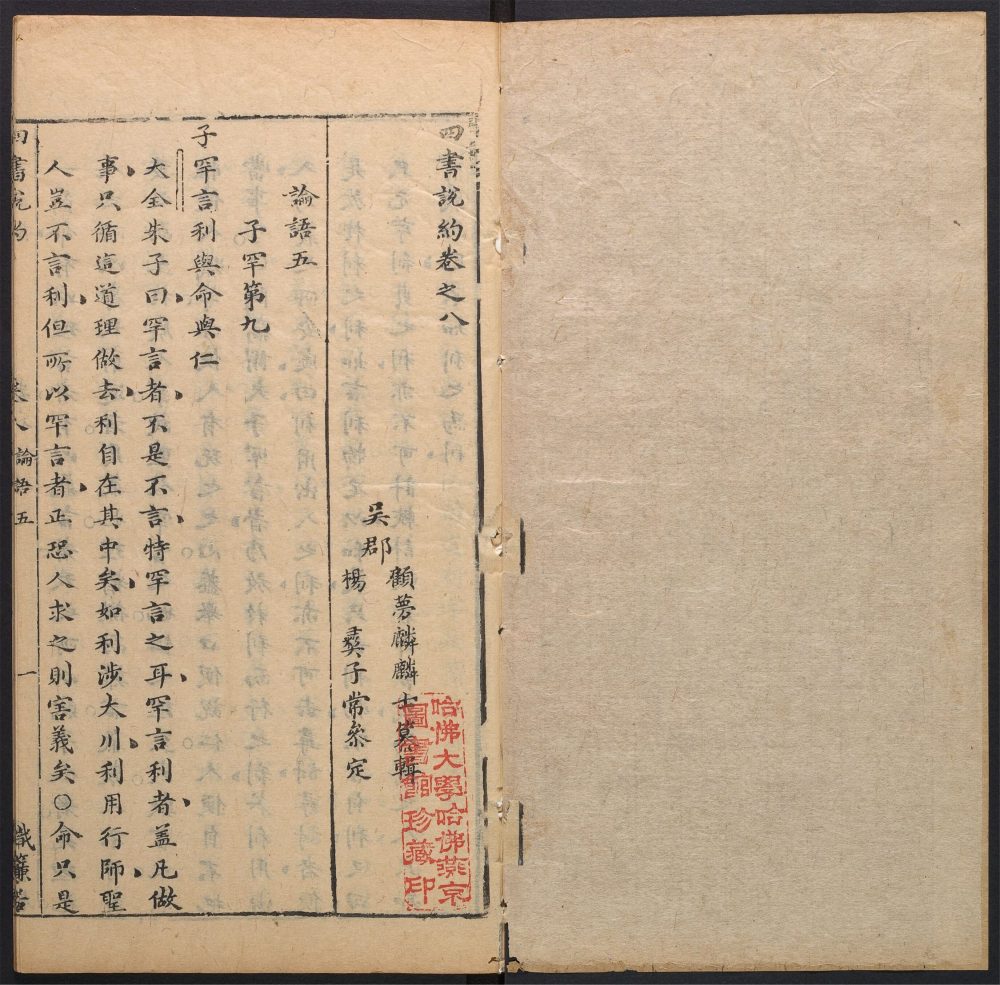 四書說約卷之八
吳郡
顧夢麟麟士纂輯
楊彝子常叅定
論語五
子罕第九
子罕言利與命與仁
大全朱子曰罕言者不是不言特罕言之耳罕言利者盖凡做
事只循這道理做去利自在其中矣如利涉大川利用行師聖
人豈不言利但所以罕言者正恐人求之則害義矣○命只是
四書說約
卷八論語五
一
織簾居
哈佛大學哈佛燕京
圖書館珍藏印